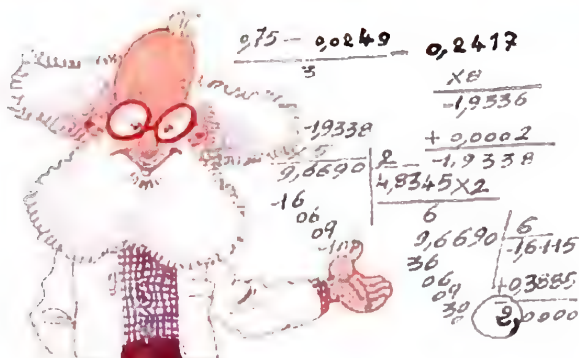 0,75 - 0,0249 - 0,2417
3
×8
-1,9336
+ 0,0002
-1,9338
-1,9338
× 5
9,6690 2
4,8345×2
-16
06
09
6
9,6690 6
-1,6115
36
06
09
30
+0,3885
2,0000